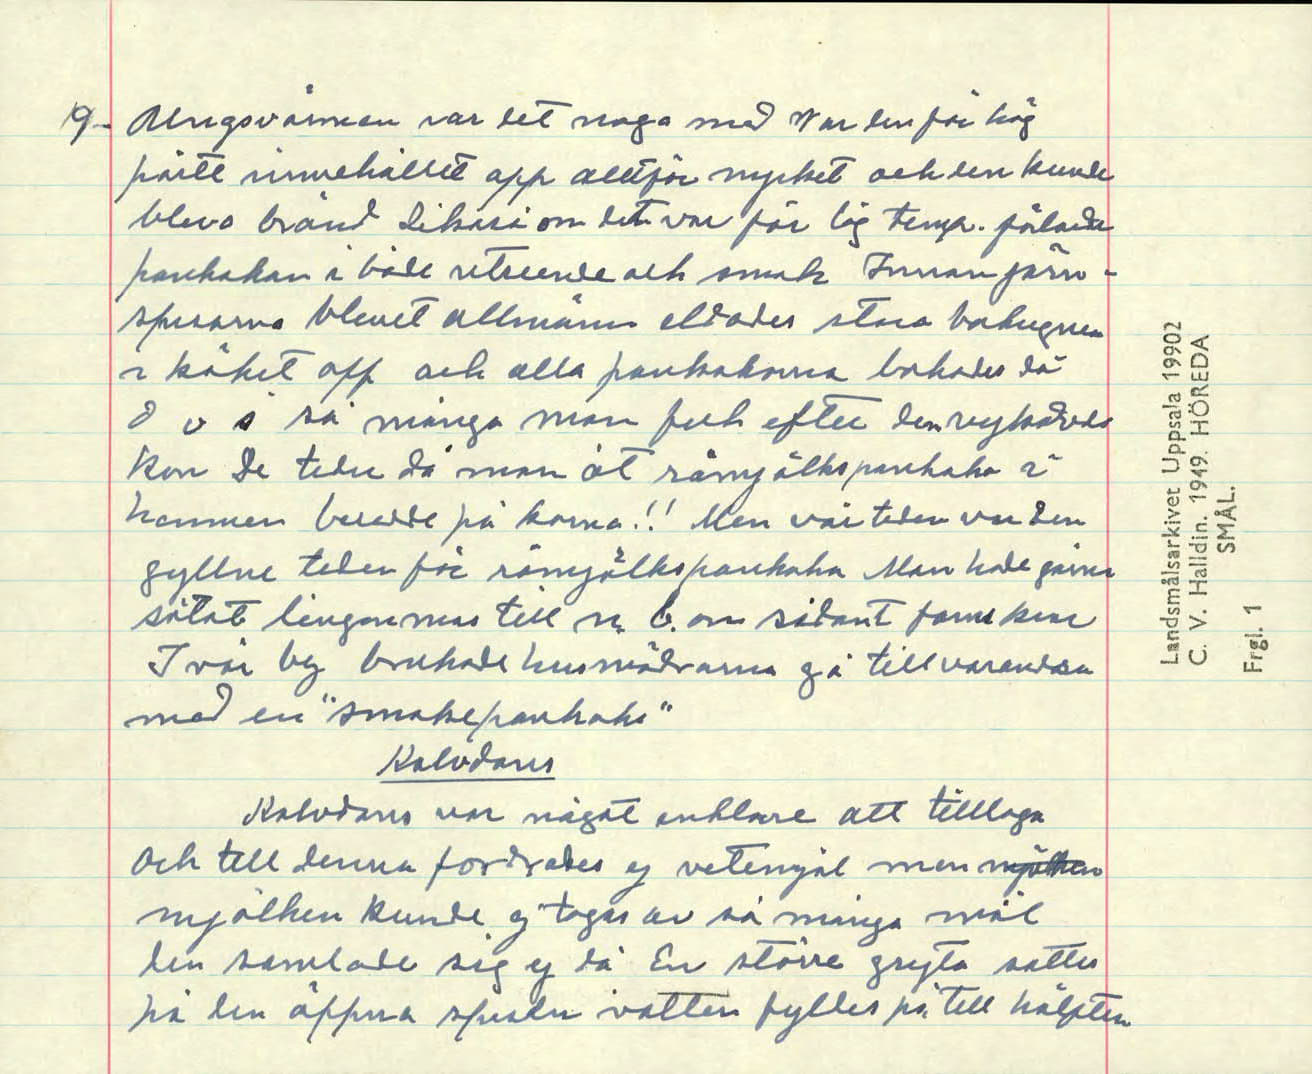 19- Ungsvärmen var det noga med Var den för hög
pöste innehållet opp alltför mycket och den kunde
bleva bränd Likaså om det var för låg temp. förlorade
pankakan i både utseende och smak Innan järn-
spisarna blevet allmänna eldades stora bakugnen
i köket opp och alla pankakorna bakades då
d v s så många man fick efter den nykalvda
kon De teder då man åt råmjölkspankaka i
hemmen berodde på korna!! Men vårteden var den
gyllne teden för råmjölkspankaka Man hade gärna
sötat lingonmos till n. b. om sådant fanns kvar
I vår by brukade husmödrarna gå till varandra
med en "smakepankaka"
Kalvdans
Kalvdans var något enklare att tilllaga
och till denna fordrades ej vetemjöl men mjölken
mjölken kunde ej tagas av så många mål
den samlade sig ej då En större gryta sattes
på den öppna spisen vatten fylles på till hälften
Landsmålsarkivet Uppsala 19902
C. V. Halldin. 1949. HÖREDA
SMÅL.
Frgl. 1